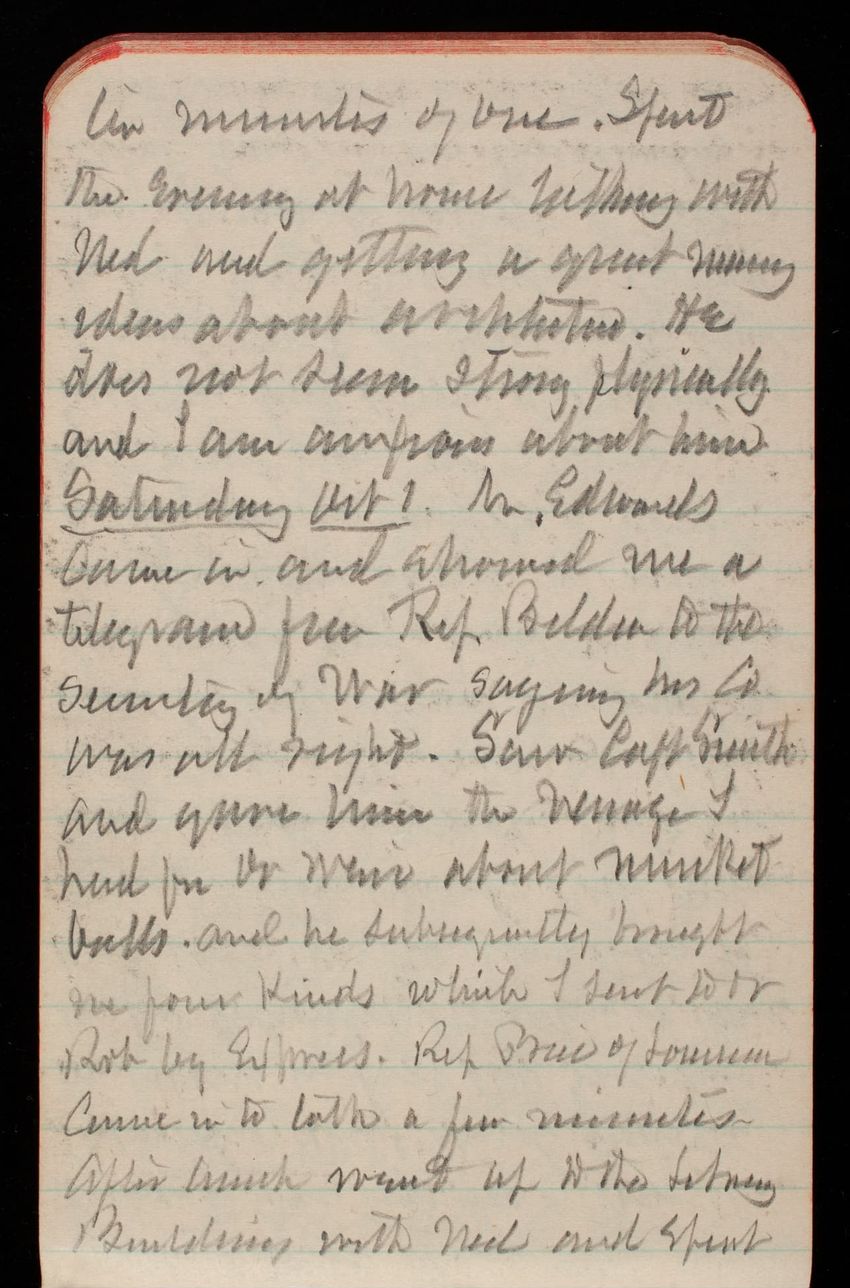 ten minutes of one. Spent
the Evening at home talking with
Ned and getting a great many
ideas about architecture. He
does not seem strong physically
and I am anxious about him
Saturday Oct 1. Mr. Edwards
came in and showed me a
telegram from Rep Belden to the
Secretary of War saying his Co
was all right. Saw Capt Smith
and gave him the message I
had for Dr Weir about musket
balls. and he subsequently brought
me four kinds which I sent to Dr
Rob by Express. Rep Price of
Came in to talk a few minutes
After lunch went up to the Library
Building with Ned and Spent